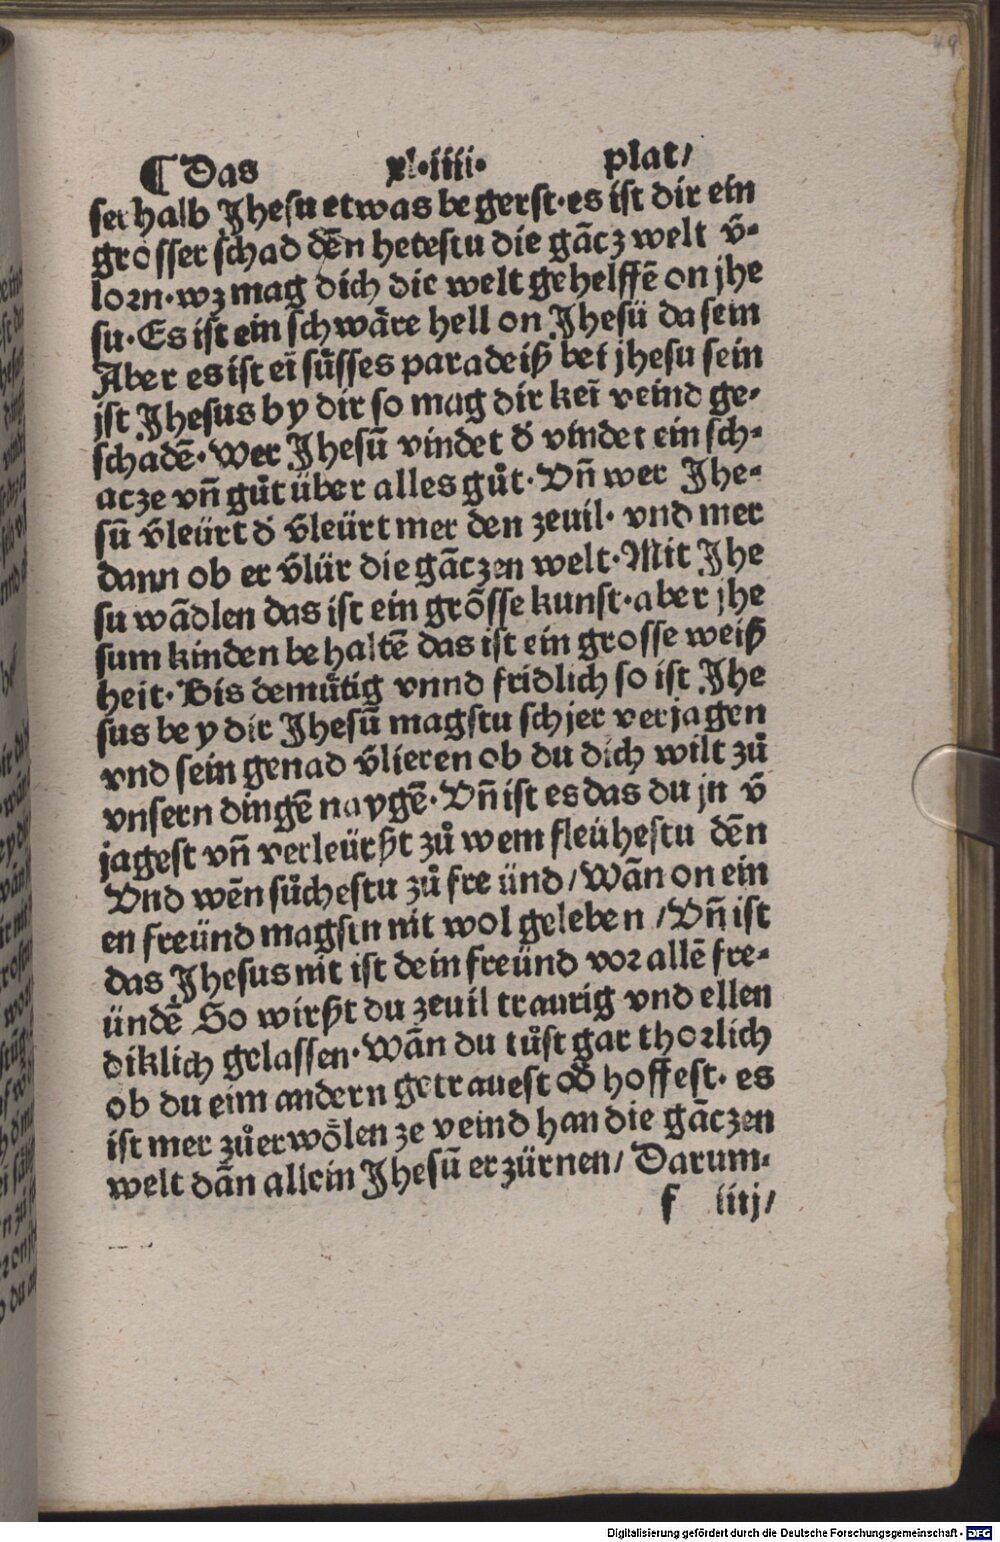 49
¶ Das xl·iiii· plat/
ser halb Jhesu etwas begerst· es ist dir ein
grosser schad dēn hetestu die gācz welt v̄-
lorn· wz mag dich die welt gehelffē on jhe
su· Es ist ein schwäre hell on Jhesü da sein
Aber es ist eī süsses paradeiß bei jhesu sein
jst Jhesus by dir so mag dir keī veind ge-
schadē· Wer Jhesū vindet d̄ vindet ein sch-
acze vn̄ gůt über alles gůt· Vn̄ wer Jhe-
sū v̄leürt d̄ v̄leürt mer den zeuil· vnd mer
dann ob er v̄lür die gāczen welt· Mit Jhe
su wādlen das ist ein grõsse kunst· aber jhe
sum kinden behaltē das ist ein grosse weiß
heit· Bis demůtig vnnd fridlich so ist Jhe
sus bey dir Jhesū magstu schjer verjagen
vnd sein genad v̄lieren ob du dich wilt zů
vnsern dingē naygē· Vn̄ ist es das du jn v̄
jagest vn̄ verleürßt zů wem fleühestu dēn
Vnd wēn sůchestu zů freünd/ Wān on ein
en freünd magstn nit wol geleben/ Vn̄ ist
das Jhesus nit ist dein freünd vor allē fre-
ündē So wirßt du zeuil traurig vnd ellen
diklich gelassen· Wān du tůst gar thorlich
ob du eim andern getrauest od̄ hoffest· es
ist mer zů erwölen ze veind han die gāczen
welt dān allein Jhesū erzürnen/ Darum-
f iiij/
Digitalisierung gefördert durch die Deutsche Forschungsgemeinschaft - DFG